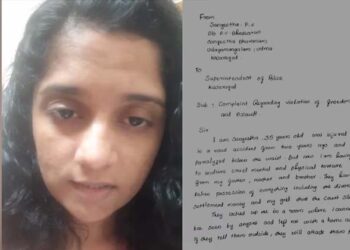 From
Sangeetha P.V
D/o P.V Bhaskaran
Sangeetha Bhavanam,
Udayamangalam, Udma
Kasaragod
To
Superintendent of Police
Kasaragod
Sub : Complaint Regarding violation of freedom
and Assault.
Sir
I am Sangeetha 35 years old was injured
in a road accident from two years ago and
Paralyzed below the waist but now I am facing
to endless cruel mental and physical torture
from my father, mother and brother. They have
taken possession of everything including the divorce
settlement money and my gold that the Court
They locked me to a room where I cannot
be seen by anyone and left me with a home
if they tell them outside, they will attack